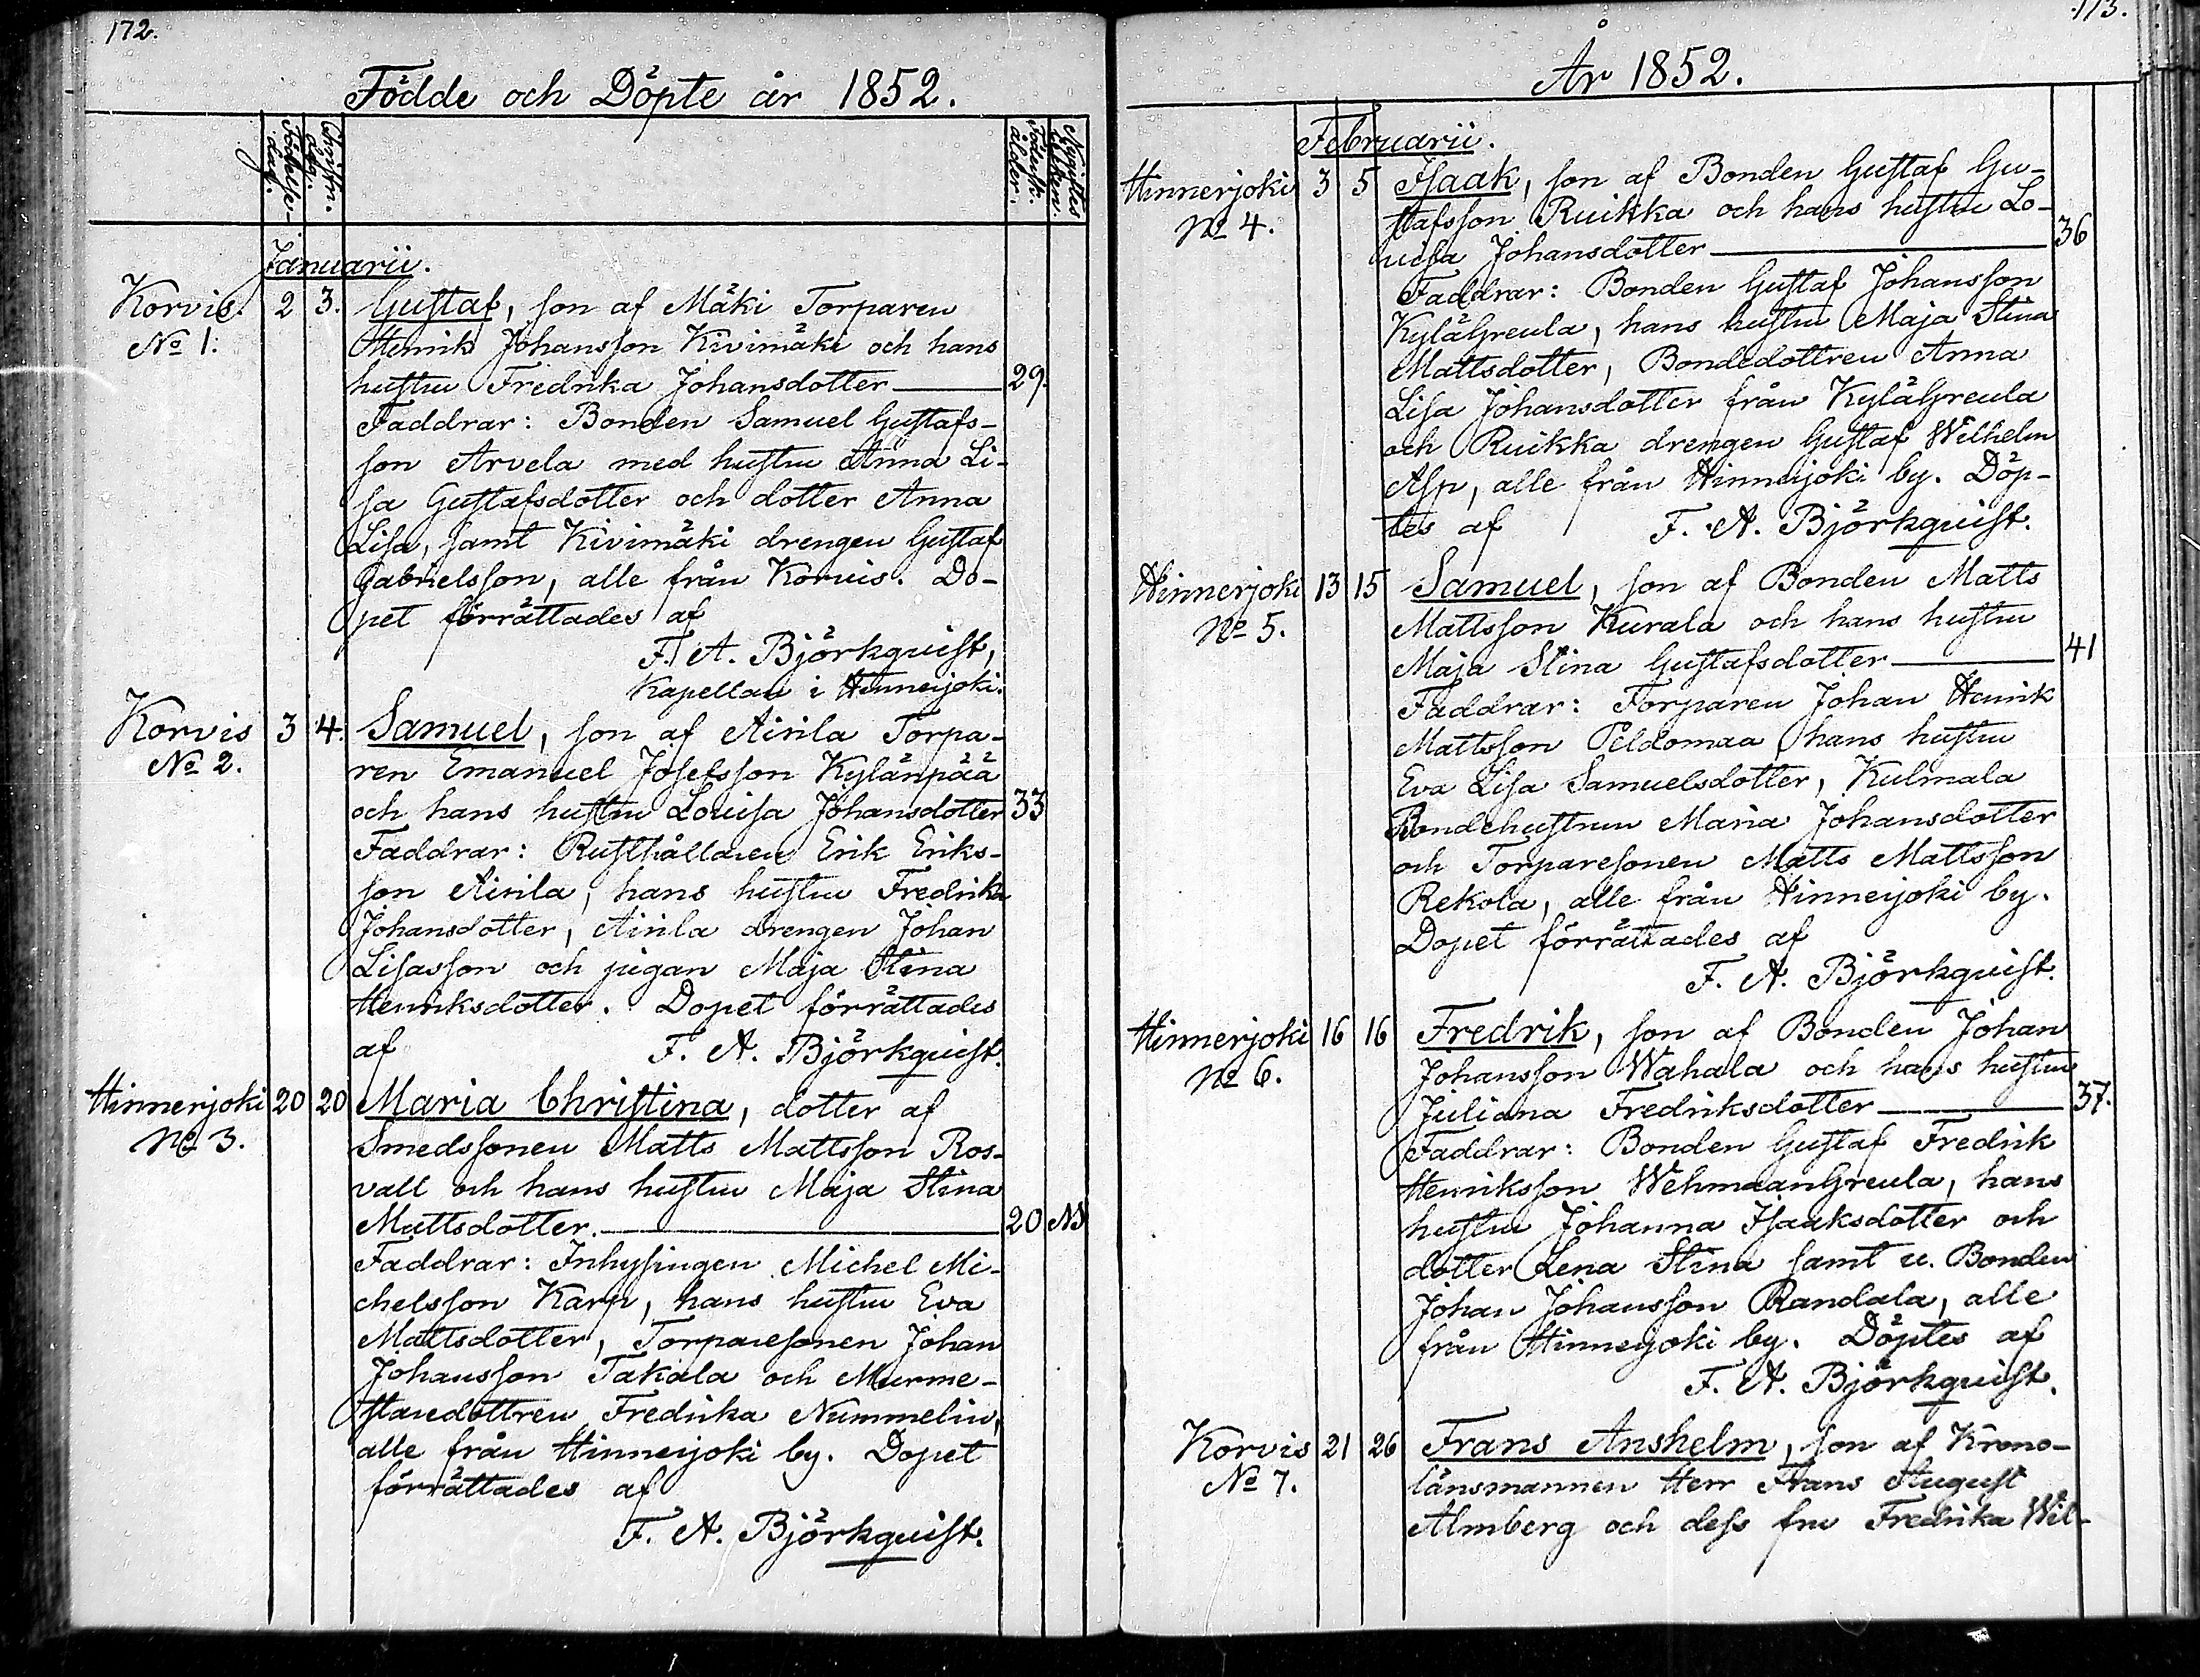 172.
Födde och Döpte år 1852.
Födelse-
dag.
Christn.
dag.
Födersk.
ålder.
Januarii.
Korvis. 2 3. Gustaf, son af Mäki Torparen
No 1. Henrik Johansson Kivimäki och hans
hustru Fredrika Johansdotter 29.
Faddrar: Bonden Samuel Gustafs-
son Arvela med hustru Anna Li-
sa Gustafsdotter och dotter Anna
Lisa, samt Kivimäki drengen Gustaf
Gabrielsson, alle från Korvis. Do-
pet förrättades af
F. A. Björkquist,
Kapellan i Hinnerjoki.
Korvis 3 4. Samuel, son af Airila Torpa-
No 2. ren Emanuel Josefsson Kylänpää
och hans hustru Lovisa Johansdotter 33
Faddrar: Rusthållaren Erik Eriks-
son Airila, hans hustru Fredrika
Johansdotter, Airila drengen Johan
Lisasson och pigan Maja Stina
Henriksdotter. Dopet förrättades
af F. A. Björkquist.
Hinnerjoki 20 20 Maria Christina, dotter af
No 3. Smedssonen Matts Mattsson Ros-
vall och hans hustru Maja Stina
Mattsdotter. 20 NN
Faddrar: Inhysingen Michel Mi-
chelsson Karp, hans hustru Eva
Mattsdotter, Torparesonen Johan
Johansson Takala och Murme-
staredottren Fredrika Nummelin,
alle från Hinnerjoki by. Dopet
förrättades af
F. A. Björkquist.
173.
År 1852.
Februarii.
Hinnerjoki 3 5 Isaak, son af Bonden Gustaf Gu-
No 4. stafsson Ruikka och hans hustru Lo-
visa Johansdotter 36
Faddrar: Bonden Gustaf Johansson
KyläGreula, hans hustru Maja Stina
Mattsdotter, Bondedottren Anna
Lisa Johansdotter från KyläGreula
och Ruikka drengen Gustaf Wilhelm
Asp, alle från Hinnerjoki by. Döp-
tes af F. A. Björkquist.
Hinnerjoki 13 15 Samuel, son af Bonden Matts
No 5. Mattsson Kurala och hans hustru
Maja Stina Gustafsdotter 41
Faddrar: Torparen Johan Henrik
Mattsson Peldomaa, hans hustru
Eva Lisa Samuelsdotter, Kulmala
Bondehustrun Maria Johansdotter
och Torparesonen Matts Mattsson
Rekola, alle från Hinnerjoki by.
Dopet förrättades af
F. A. Björkquist.
Hinnerjoki 16 16 Fredrik, son af Bonden Johan
No 6. Johansson Wahala och hans hustru
Juliana Fredriksdotter 37.
Faddrar: Bonden Gustaf Fredrik
Henriksson WehmaanGreula, hans
hustru Johanna Isaaksdotter och
dotter Lena Stina samt u. Bonden
Johan Johansson Randala, alle
från Hinnerjoki by. Döptes af
F. A. Björkquist.
Korvis 21 26 Frans Anshelm, son af Krono-
No 7. länsmannen Herr Frans August
Almberg och dess fru Fredrika Wil-